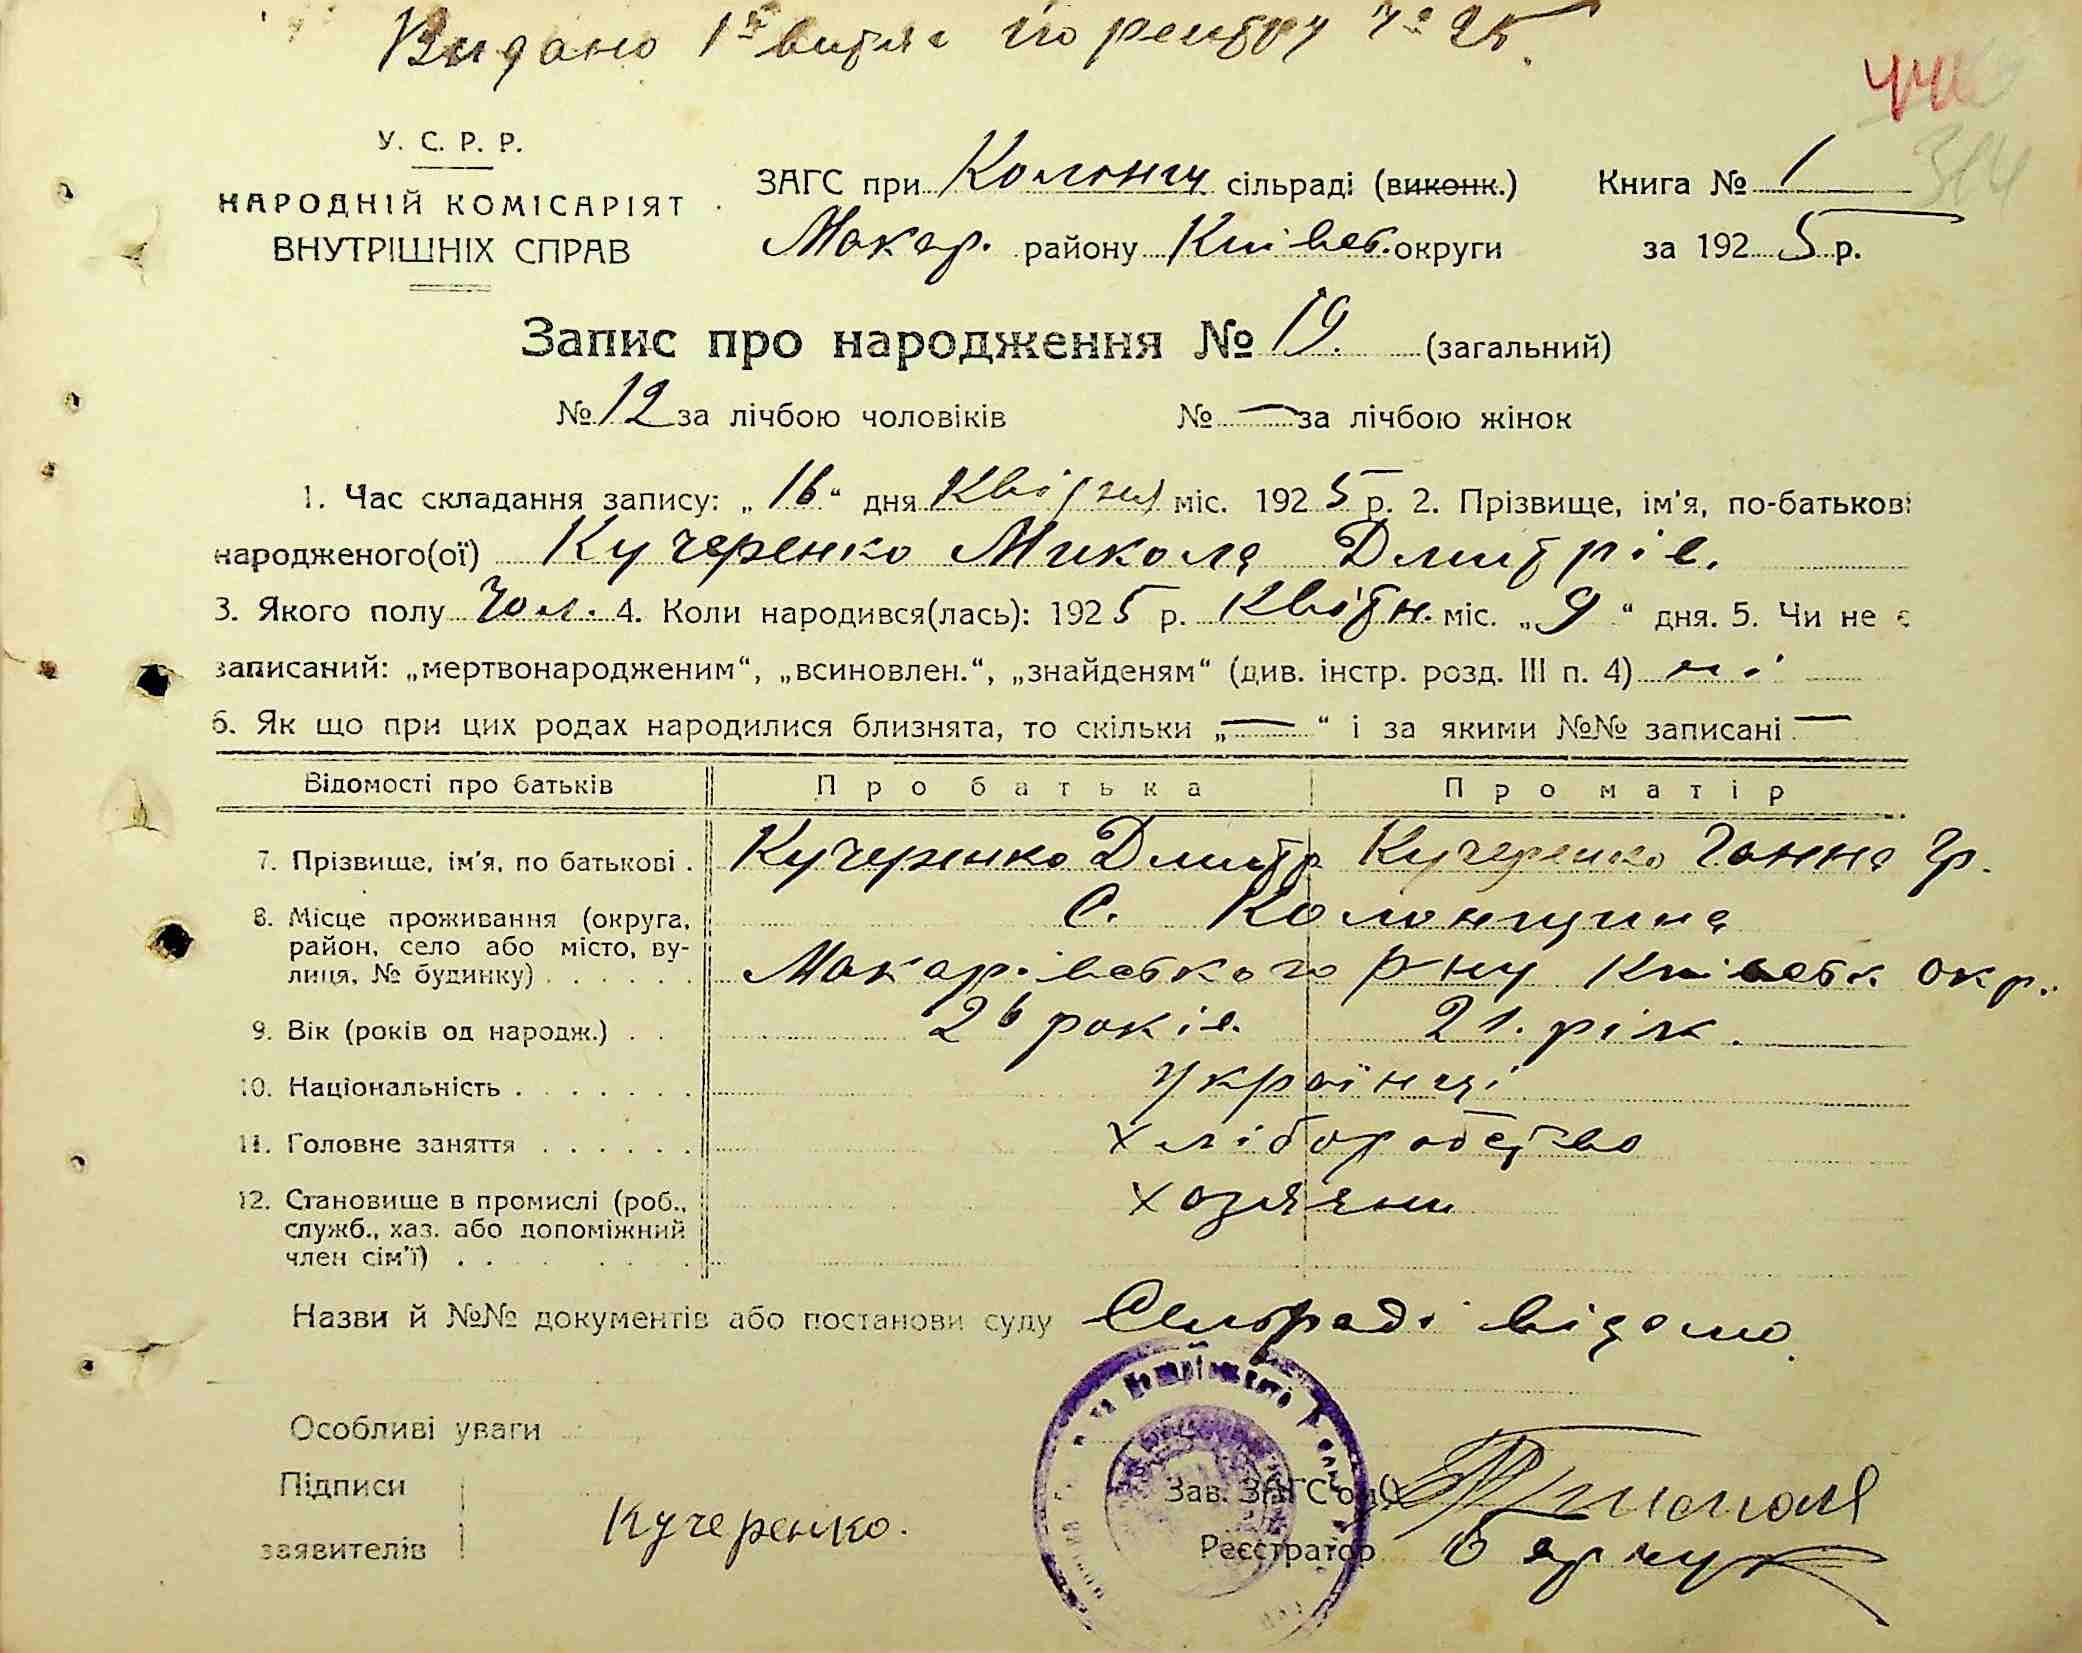 Видано 1й витяг по реєстру № 25.
44
314
У. С. Р. Р.
НАРОДНІЙ КОМІСАРІЯТ
ВНУТРІШНІХ СПРАВ
ЗАГС при Колонщ сільраді (виконк.)
Макар. району Київськ. округи
Книга № 1
за 1925 р.
Запис про народження № 19. (загальний)
№ 12 за лічбою чоловіків № — за лічбою жінок
1. Час складання запису: „16“ дня Квітня міс. 1925 р. 2. Прізвище, ім'я, по-батькові
народженого(ої) Кучеренко Микола Дмитрів.
3. Якого полу Чол. 4. Коли народився(лась): 1925 р. Квітн. міс. „9“ дня. 5. Чи не є
записаний: „мертвонародженим“, „всиновлен.“, „знайденям“ (див. інстр. розд. III п. 4) ні
6. Як що при цих родах народилися близнята, то скільки „—“ і за якими №№ записані —
Відомості про батьків Про батька Про матір
7. Прізвище, ім'я, по батькові . Кучеренко Дмитр Кучеренко Ганна Гр.
8. Місце проживання (округа, район, село або місто, вулиця, № будинку) . . . . . . с. Колонщина
Макарівського р-ну Київськ. окр.
9. Вік (років од народж.) . . 26 років. 21. рік.
10. Національність . . . . . . . українці
11. Головне заняття . . . . . . хліборобство
12. Становище в промислі (роб., служб., хаз. або допоміжний член сім'ї) . . хозяяни
Назви й №№ документів або постанови суду Сільраді відомо.
Особливі уваги
Підписи
заявителів
Кучеренко.
Зав. ЗАГС'ом
Реєстратор